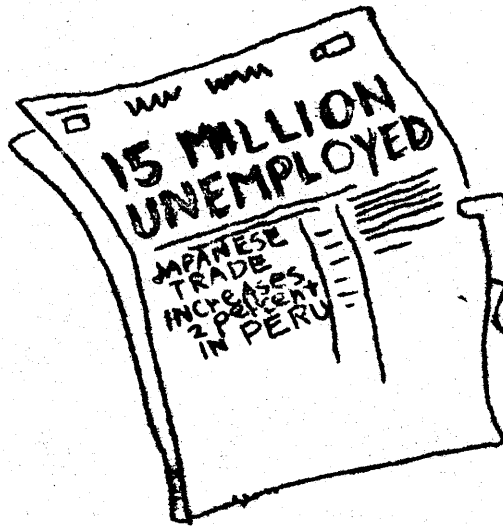 15 MILLION
UNEMPLOYED
JAPANESE
TRADE
INCREASES
2 PERCENT
IN PERU